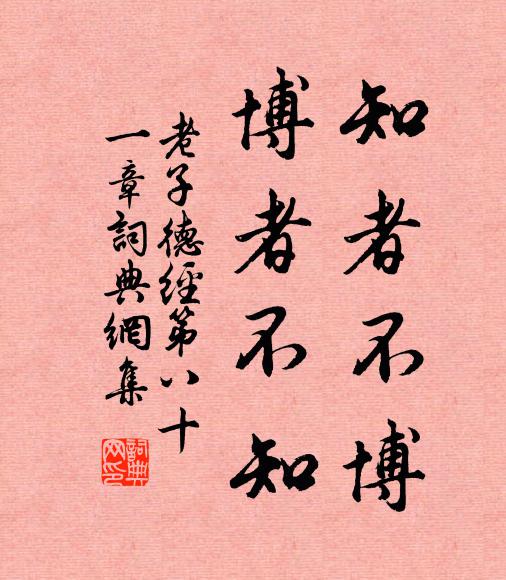 知者不博
博者不知
老子德經第八十
一章詞典網集
詞典
网印